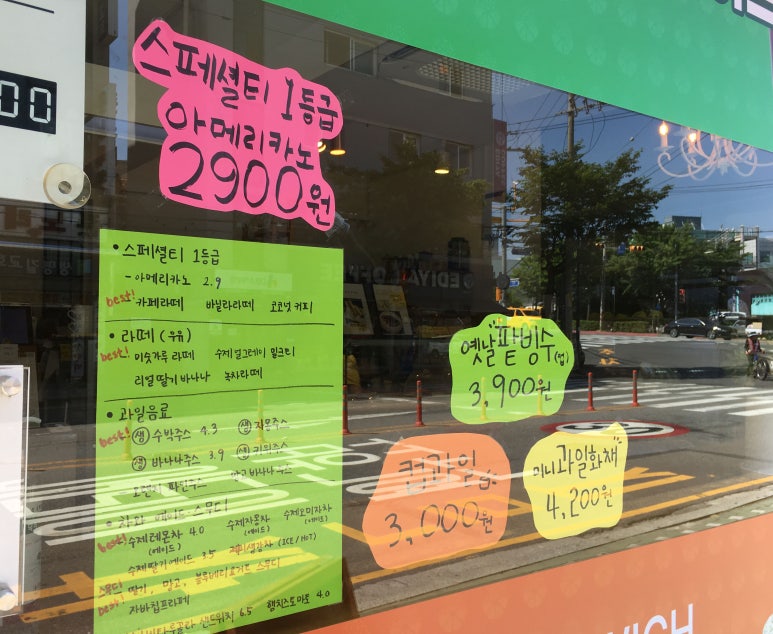 00
스페셜티 1등급
아메리카노
2900원
• 스페셜티 1등급
- 아메리카노 2.9
best! 카페라떼 바닐라라떼 코코넛 커피
• 라떼 (우유)
best! 미숫가루 라떼 수제 얼그레이 밀크티
리얼 딸기 바나나 녹차라떼
• 과일음료
best! 생 수박주스 4.3 생 자몽주스
생 바나나주스 3.9 생 키위주스
best! 수제레몬차 4.0 수제자몽차 수제오미자차
(에이드) (에이드) (에이드)
수제딸기에이드 3.5 수제생강차 (ICE/HOT)
스무디 딸기, 망고, 블루베리요거트 스무디
best! 자바칩프라페
샌드위치 6.5 햄치즈토마토 4.0
EDIYA
옛날팥빙수(컵)
3,900원
컵과일
3,000원
미니과일화채
4,200원
WICH